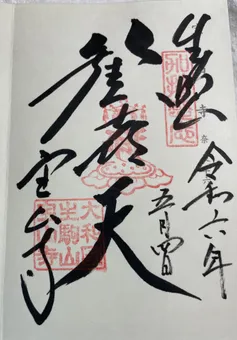 生駒
令和六年
五月四日
歓喜天
宝山寺
大和國
生駒山
寳山寺